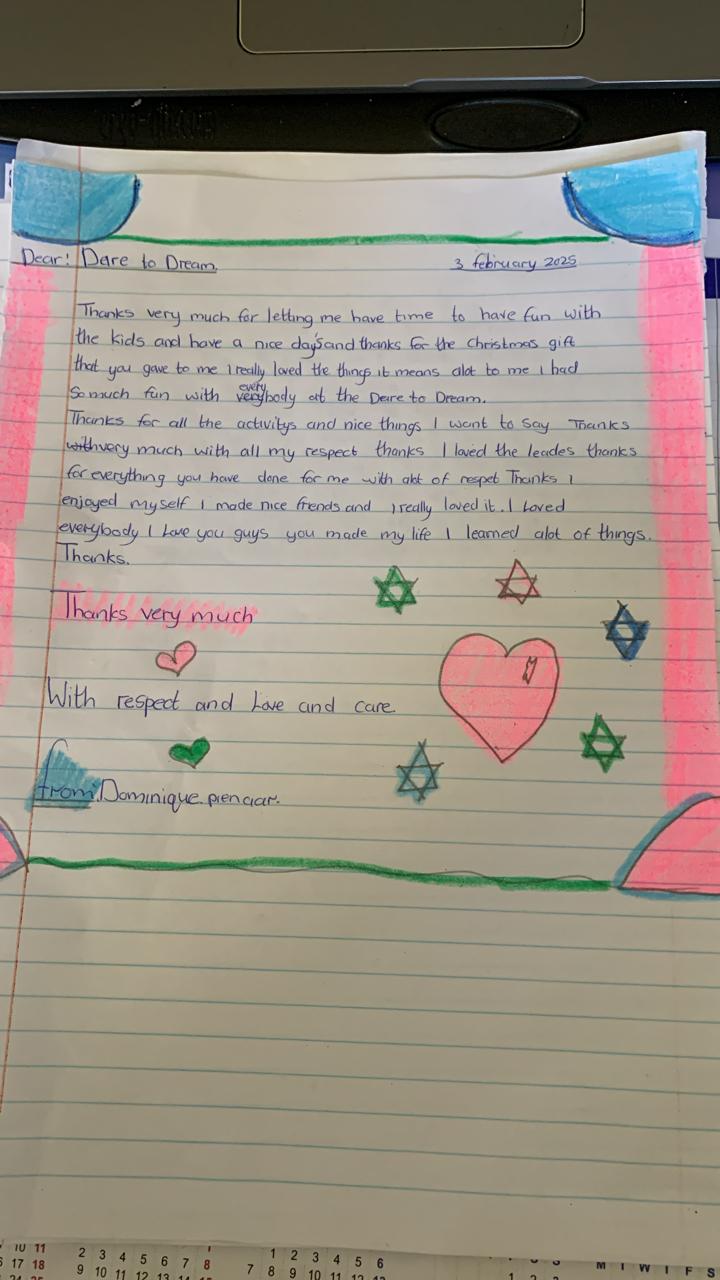 Dear! Dare to Dream.
3 february 2025
Thanks very much for letting me have time to have fun with
the kids and have a nice day's and thanks for the Christmas gift
that you gave to me I really loved the things it means alot to me I had
So much fun with everybody at the Dare to Dream.
Thanks for all the activitys and nice things I want to say Thanks
very much with all my respect thanks I loved the leades thanks
for everything you have done for me with alot of respet Thanks I
enjoyed myself I made nice friends and I really loved it. I Loved
everybody I Love you guys you made my life I learned alot of things.
Thanks.
Thanks very much
With respect and Love and care.
from: Dominique pienaar.
10 11
17 18
2 3 4 5 6 7 8
9 10 11 12 13 14 15
1 2 3 4 5 6
7 8 9 10 11 12 13
1 2 3
M T W T F S